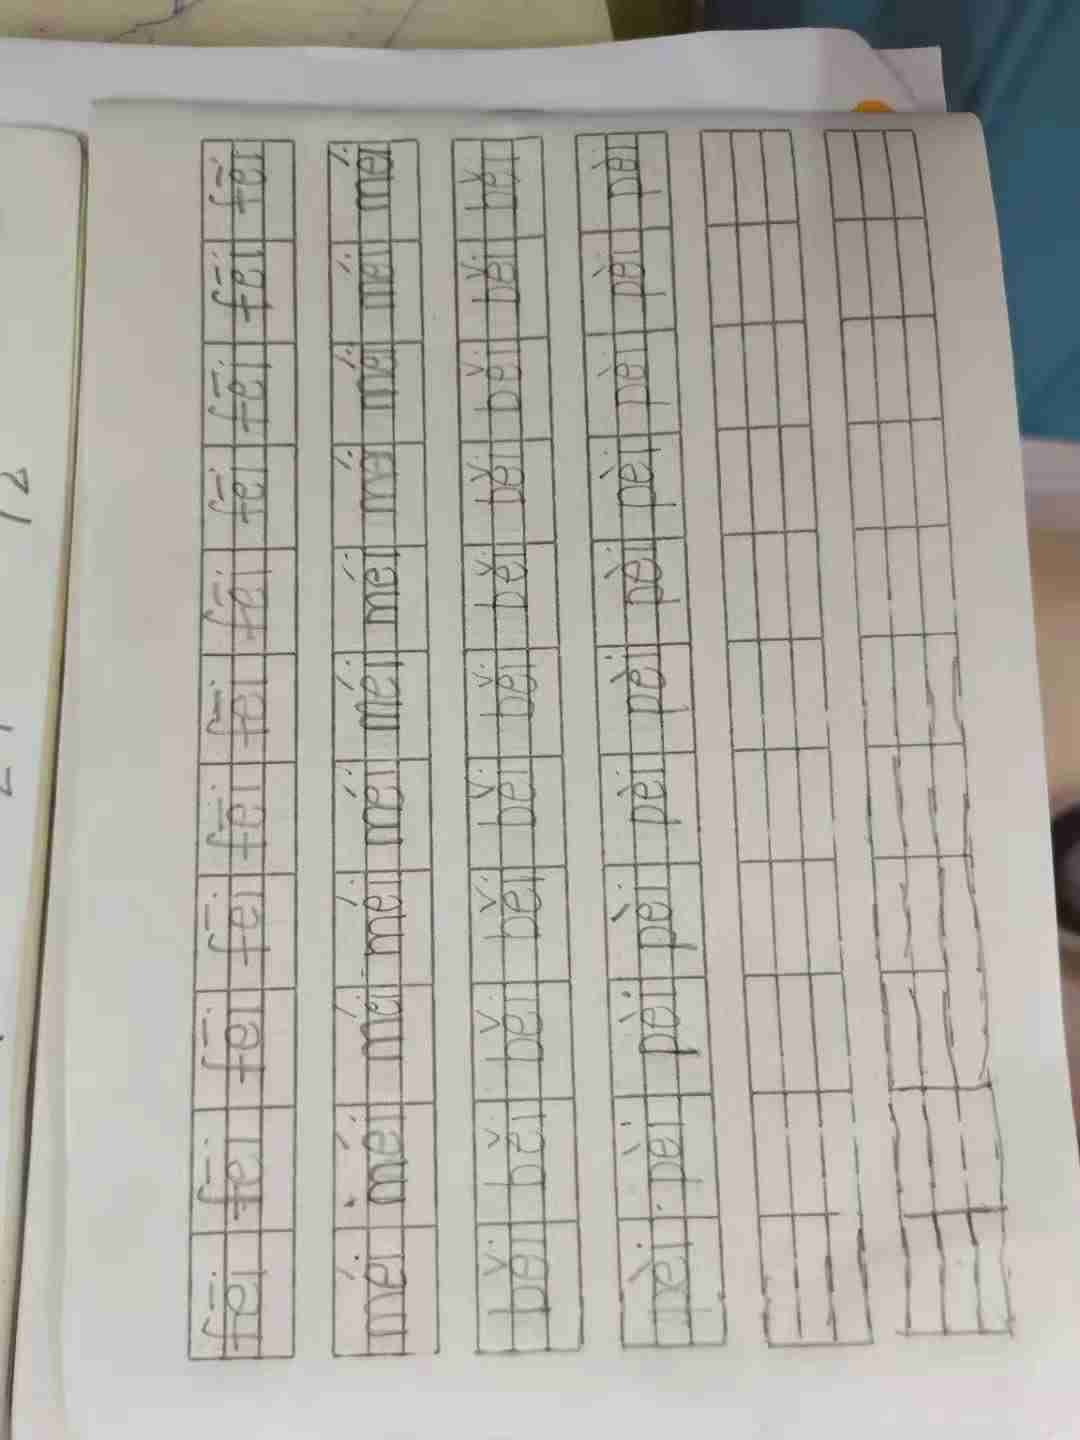 12
fēi fēi fēi fēi fēi fēi fēi fēi fēi fēi fēi
méi méi méi méi méi méi méi méi méi méi méi
běi běi běi běi běi běi běi běi běi běi běi
pèi pèi pèi pèi pèi pèi pèi pèi pèi pèi pèi